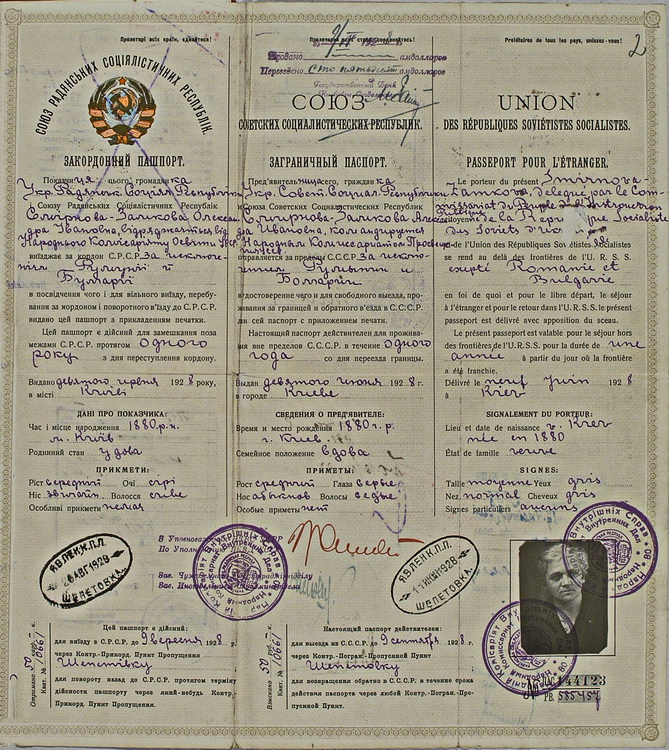 Пролетарі всіх країн, єднайтеся!
СОЮЗ РАДЯНСЬКИХ СОЦІЯЛІСТИЧНИХ РЕСПУБЛІК.
ЗАКОРДОННИЙ ПАШПОРТ.
Показчи ця цього, громадян ка
Укр. Радянськ. Соціял. Республіки
Союзу Радянських Соціялістичних Республік
Смирнова-Залкова Олекса
ндра Іванівна, відряджається від
Народного Комісаріяту Освіти УСРР
виїзжає за кордон С.Р.С.Р. за исключе-
нням Румунії й
Булгарії
в посвідчення чого і для вільного виїзду, перебу-
вання за кордоном і поворотного в'їзду до С.Р.С.Р.
видано цей пашпорт з прикладенням печатки.
Цей пашпорт є дійсний для замешкання поза
межами С.Р.С.Р. протягом одного
року з дня переступлення кордону.
Видано девятого червня 1928 року,
в місті Київі
ДАНІ ПРО ПОКАЗЧИКА:
Час і місце народження 1880 р. н.
м. Київ
Родинний стан удова
ПРИКМЕТИ:
Ріст середній Очі сірі
Ніс звичайн. Волосся сиве
Особливі прикмети немає
ЯВЛЕН К.П.П.
АВГ 1928
ШЕПЕТОВКА.
Цей пашпорт є дійсний:
для виїзду з С.Р.С.Р. до 9 вересня 1928 р.
через Контр.-Прикорд. Пункт Пропущення
Шепетівку
для повороту назад до С.Р.С.Р. протягом терміну
дійсности пашпорту через який-небудь Контр.-
Прикорд. Пункт Пропущення.
Пролетарии всех стран, соединяйтесь!
Продано амдолларов
Переведено Сто пятьдесят амдолларов
Государственный Банк
СОЮЗ
СОВЕТСКИХ СОЦИАЛИСТИЧЕСКИХ РЕСПУБЛИК.
ЗАГРАНИЧНЫЙ ПАСПОРТ.
Пред'явительница сего, граждан ка
Укр. Совет. Социал. Республики
Союза Советских Социалистических Республик
Смирнова-Залкова Алексан
дра Ивановна, командируется
Народным Комиссариатом Просвещ
отправляется за пределы С.С.С.Р. за исклю-
чением Румынии и
Болгарии
в удостоверение чего и для свободного выезда, про-
живания за границей и обратного в'езда в С.С.С.Р.
дан сей паспорт с приложением печати.
Настоящий паспорт действителен для прожива-
ния вне пределов С.С.С.Р. в течение одного
года со дня переезда границы.
Выдан девятого июня 1928 г.
в городе Киеве
СВЕДЕНИЯ О ПРЕД'ЯВИТЕЛЕ:
Время и место рождения 1880 г. р.
г. Киев
Семейное положение вдова
ПРИМЕТЫ:
Рост средний Глаза серые
Нос обыкнов Волосы седые
Особые приметы нет
В Уполномоч
По Уполном
ЯВЛЕН К.П.П.
ИЮН 1928
ШЕПЕТОВКА.
Настоящий паспорт действителен:
для выезда из С.С.С.Р. до 9 сентября 1928 г.
через Контр.-Погран.-Пропускной Пункт
Шепетовку
для возвращения обратно в С.С.С.Р. в течение срока
действия паспорта через любой Контр.-Погран.-Про-
пускной Пункт.
2
Prolétaires de tous les pays, unissez-vous!
UNION
DES RÉPUBLIQUES SOVIÉTISTES SOCIALISTES.
PASSEPORT POUR L'ÉTRANGER.
Le porteur du présent Smirnova-
Zalkova, délegué par le Com-
missariat du Peuple de l'Instruction
Publique de la Rep
Socialiste
des Soviets d'Ukr
de l'Union des Républiques Soviétistes Socialistes
se rend au delà des frontières de l'U. R. S. S.
excepté Romanie et
Bulgarie
en foi de quoi et pour le libre départ, le séjour
à l'étranger et pour le retour dans l'U.R.S.S. le présent
passeport est délivré avec apposition du sceau.
Le présent passeport est valable pour le séjour hors
des frontières de l'U.R.S.S. pour la durée de une
année à partir du jour où la frontière
a été franchie.
Délivré le neuf Juin 1928
à Kiev
SIGNALEMENT DU PORTEUR:
Lieu et date de naissance v. Kiev
née en 1880
État de famille veuve
SIGNES:
Taille moyenne Yeux gris
Nez normal Cheveux gris
Signes particuliers aucuns
№ 144123
РВ. 585457